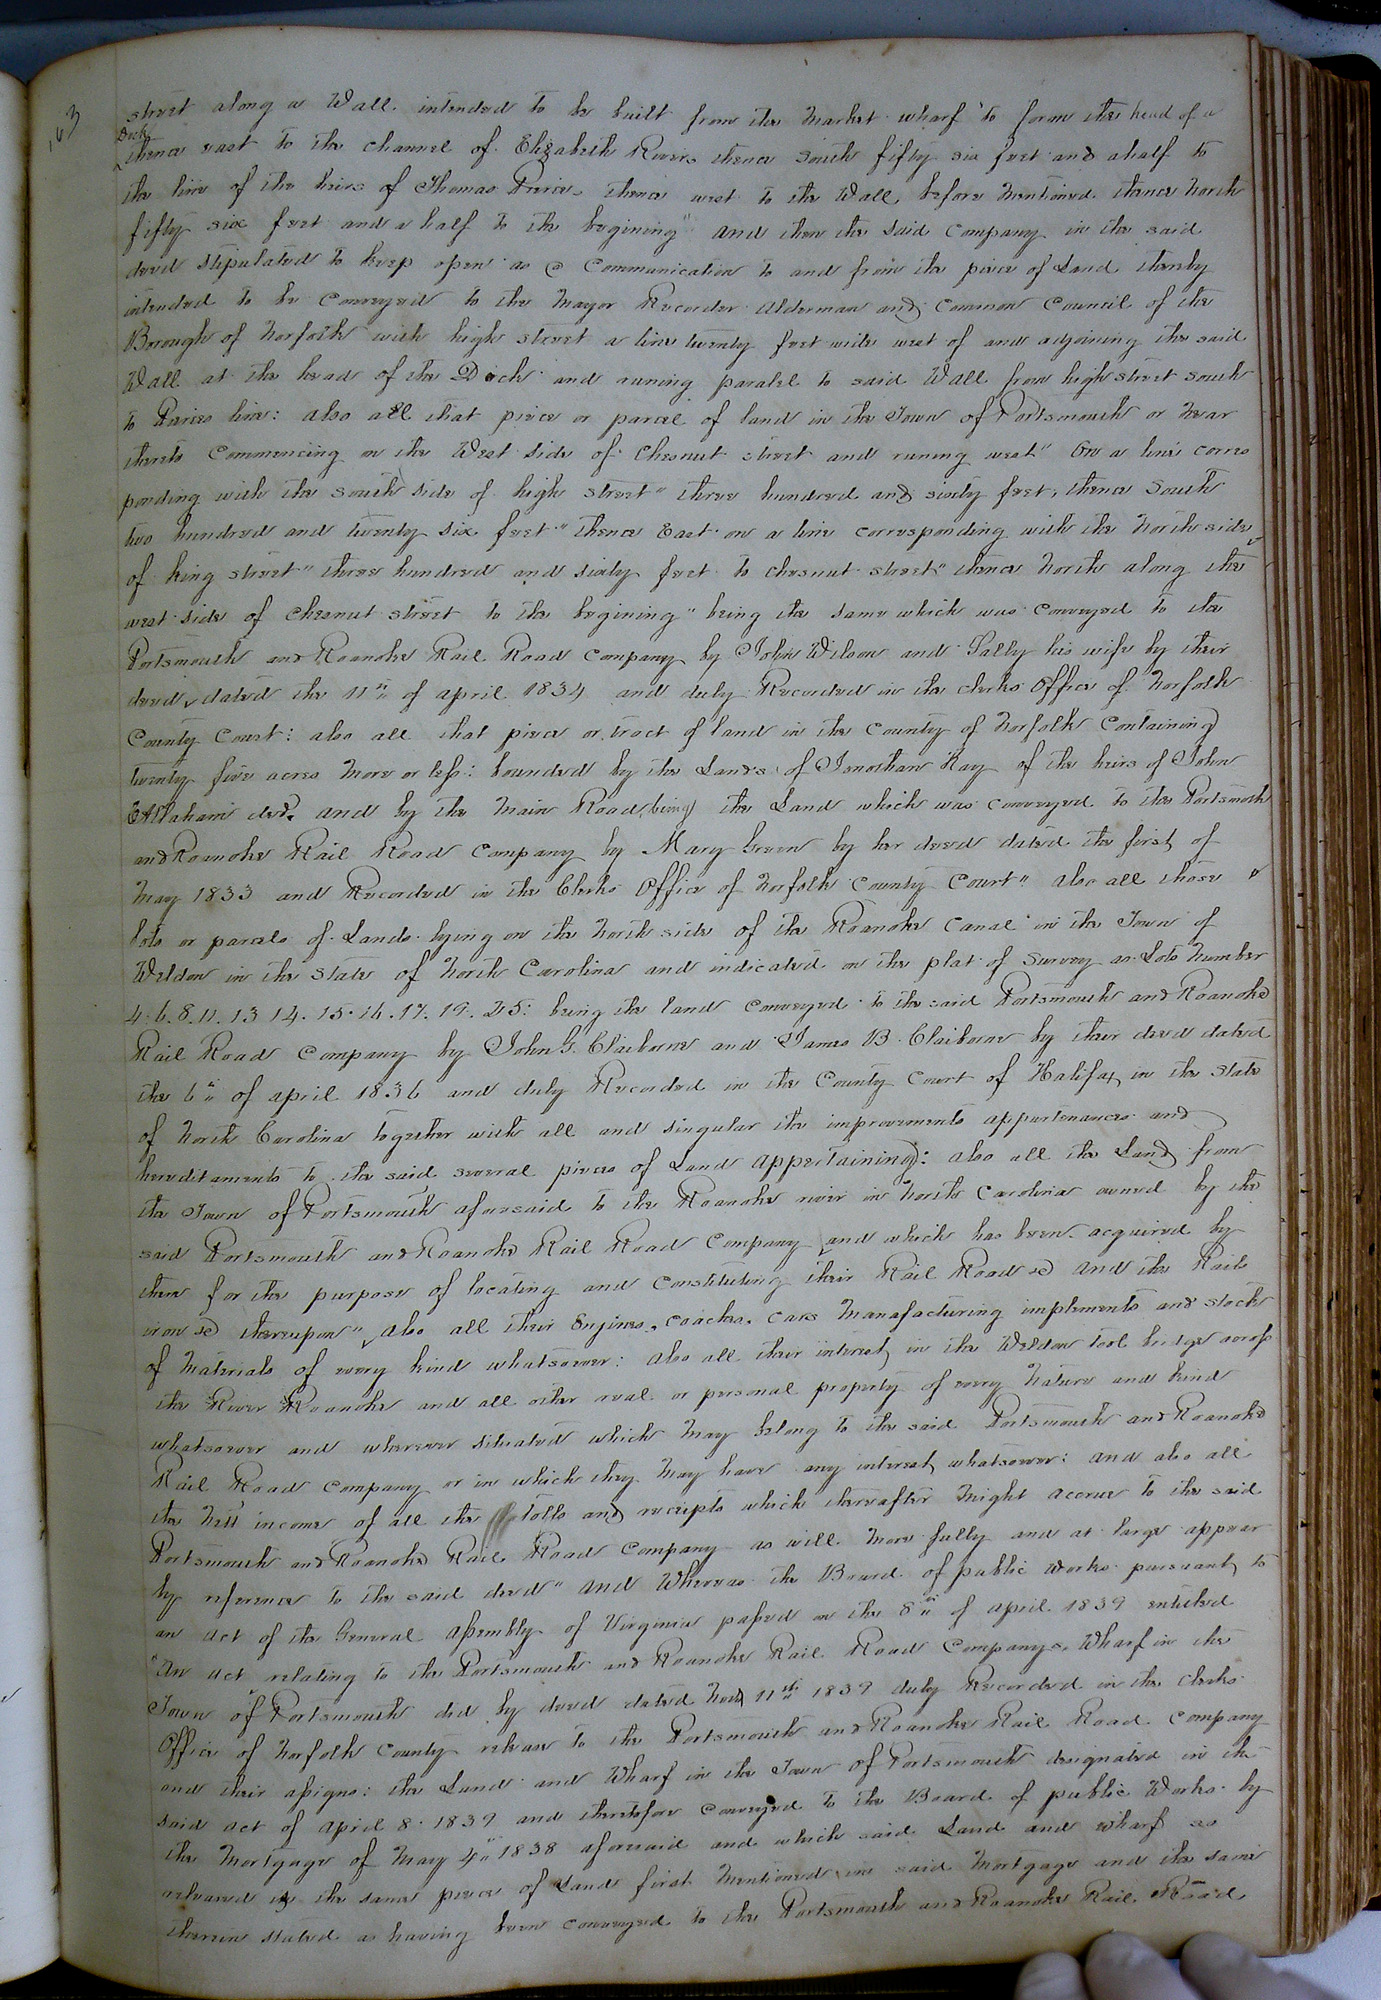 163
street along a Wall intended to be built from the Market wharf to form the head of a
Dock
thence east to the channel of Elizabeth River thence South fifty six feet and a half to
the line of the heirs of Thomas Pierce thence west to the Wall before Mentioned thence North
fifty six feet and a half to the begining" and then the said Company in the said
deed stipulated to keep open as a Communication to and from the piece of Land thereby
intended to be Conveyed to the Mayor Recorder Alderman and Common Council of the
Borough of Norfolk with high street a line twenty feet wide west of and adjoining the said
Wall at the head of the Dock and runing paralel to said Wall from high street South
to Pierces line: also all that piece or parcel of land in the Town of Portsmouth or Near
thereto Commencing on the West Side of Chesnut street and runing west" On a line corres
ponding with the South Side of high street" three hundred and sixty feet, thence South
two hundred and twenty six feet" thence East on a line corresponding with the North side
of King street" three hundred and sixty feet to chesnut street" thence North along the
west side of Chesnut street to the begining" being the same which was Conveyed to the
Portsmouth and Roanoke Rail Road Company by John Wilson and Sally his wife by their
deed dated the 11th of april 1834 and duly Recorded in the clerks Office of Norfolk
County Court: also all that piece or tract of land in the County of Norfolk Containing
twenty five acres More or less: bounded by the Lands of Jonathan Hay of the heirs of John
decd. and by the Main Road, being the Land which was conveyed to the Portsmouth
and Roanoke Rail Road Company by Mary Green by her deed dated the first of
May 1833 and Recorded in the Clerks Office of Norfolk County Court" Also all those
lots or parcels of Lands lying on the North side of the Roanoke Canal in the Town of
Weldon in the state of North Carolina and indicated on the plat of Survey as Lots Number
4. 6. 8. 11. 13 14. 15. 16. 17. 19. 25: being the land conveyed to the said Portsmouth and Roanoke
Rail Road Company by John G. Claiborne and James B. Claiborne by their deed dated
the 6th of april 1836 and duly Recorded in the County Court of Halifax in the State
of North Carolina together with all and Singular the improvements appurtenances and
hereditaments to the said several pieces of Land appertaining: also all the Land from
the Town of Portsmouth aforesaid to the Roanoke river in North Carolina owned by the
said Portsmouth and Roanoke Rail Road Company and which has been acquired by
them for the purpose of locating and Constituting their Rail Road &c and the Rails
iron &c thereupon" also all their Engines, coaches, cars Manafacturing implements and stock
of Materials of every kind whatsoever: also all their interest in the Weldon tool bridge across
the River Roanoke and all other real or personal property of every Nature and kind
whatsoever and wherever situated which May belong to the said Portsmouth and Roanoke
Rail Road Company or in which they May have any interest whatsoever: and also all
the Nett income of all the tolls and receipts which thereafter Might accrue to the said
Portsmouth and Roanoke Rail Road Company as will More fully and at large appear
by reference to the said deed" and Whereas the Board of public Works pursuant to
an act of the General Assembly of Virginia passed on the 8th of april 1839 entitled
"An act relating to the Portsmouth and Roanoke Rail Road Companys Wharf in the
Town of Portsmouth did by deed dated Nov 11th 1839 duly Recorded in the clerks
Office of Norfolk County release to the Portsmouth and Roanoke Rail Road Company
and their assigns: the Land and Wharf in the Town of Portsmouth designated in the
said act of April 8. 1839 and theretofore conveyed to the Board of public Works by
the Mortgage of May 4th 1838 aforesaid and which said Land and wharf so
released is the same piece of Land first Mentioned in said Mortgage and the same
therein stated as having been conveyed to the Portsmouth and Roanoke Rail Road